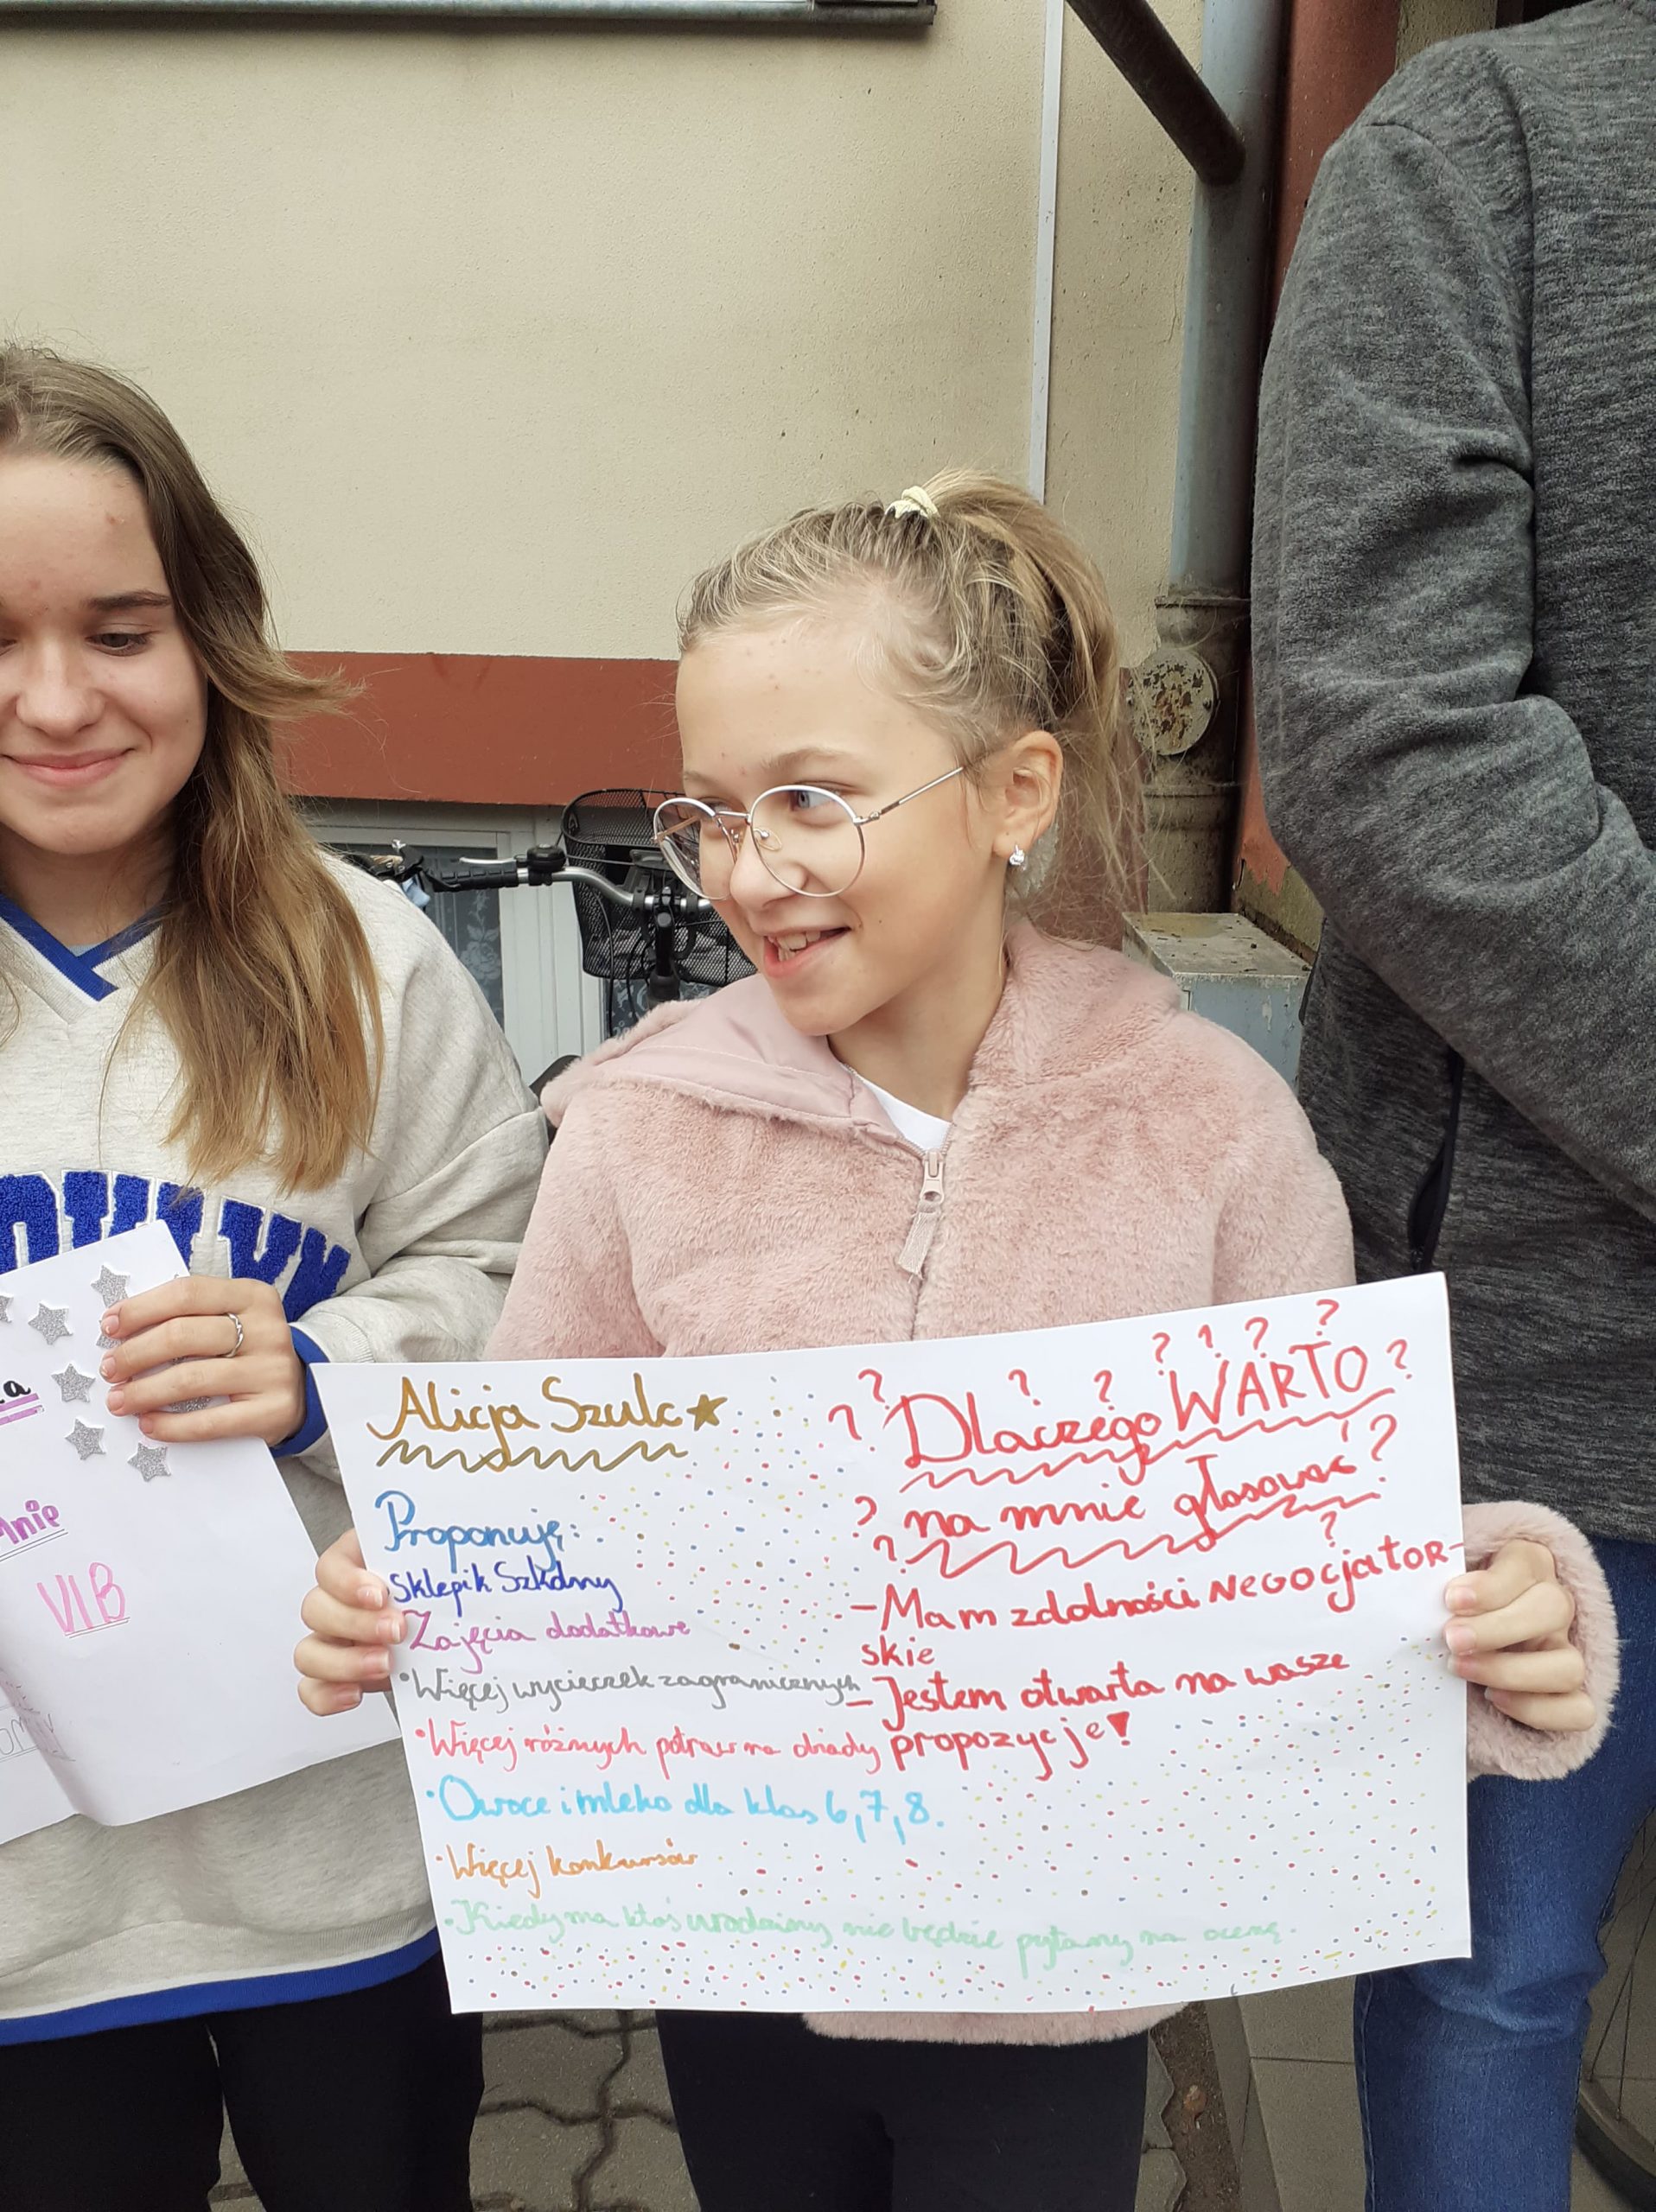 Alicja Szulc
Proponuję:
Sklepik Szkolny
Zajęcia dodatkowe
•Więcej wycieczek zagranicznych
•Więcej różnych potraw na obiady
•Owoce i mleko dla klas 6,7,8.
•Więcej konkursów
•Kiedy ma ktoś urodziny nie będzie pytany na ocenę.
? ? ? ? ? ? ? ?
Dlaczego WARTO ?
? na mnie głosować ?
? ?
-Mam zdolności NEGOcjatOR-
skie
-Jestem otwarta na wasze
propozycje!
a
Mnie
VIB